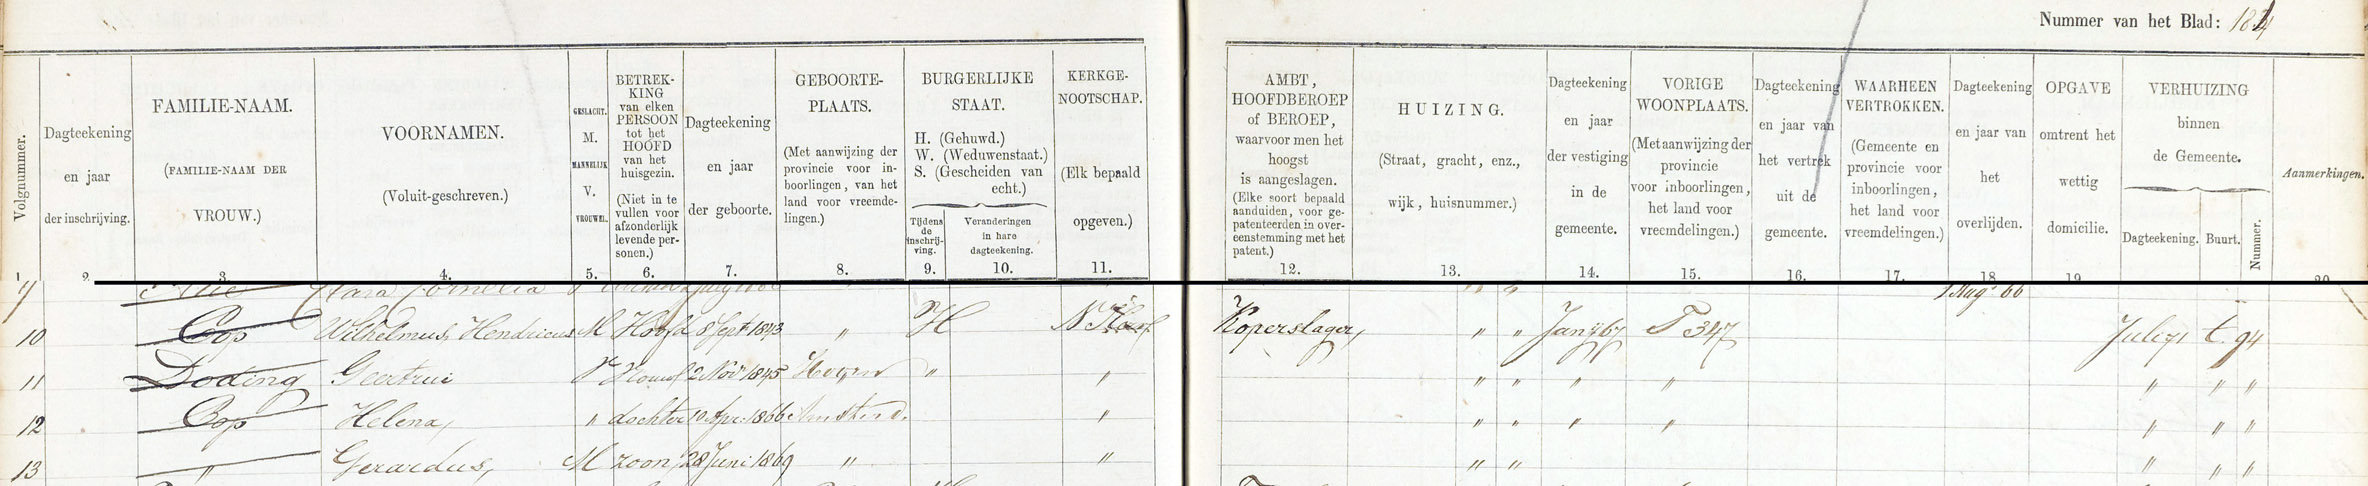 Nummer van het Blad: 184
Volgnummer.
Dagteekening
en jaar
der inschrijving.
FAMILIE-NAAM.
(FAMILIE-NAAM DER
VROUW.)
VOORNAMEN.
(Voluit-geschreven.)
GESLACHT.
M.
MANNELIJK
V.
VROUWEL.
BETREK-
KING
van elken
PERSOON
tot het
HOOFD
van het
huisgezin.
(Niet in te
vullen voor
afzonderlijk
levende per-
sonen.)
Dagteekening
en jaar
der geboorte.
GEBOORTE-
PLAATS.
(Met aanwijzing der
provincie voor in-
boorlingen, van het
land voor vreemde-
lingen.)
BURGERLIJKE
STAAT.
H. (Gehuwd.)
W. (Weduwenstaat.)
S. (Gescheiden van
echt.)
Tijdens
de
inschrij-
ving.
Veranderingen
in hare
dagteekening.
KERKGE-
NOOTSCHAP.
(Elk bepaald
opgeven.)
AMBT,
HOOFDBEROEP
of BEROEP,
waarvoor men het
hoogst
is aangeslagen.
(Elke soort bepaald
aanduiden, voor ge-
patenteerden in over-
eenstemming met het
patent.)
HUIZING.
(Straat, gracht, enz.,
wijk, huisnummer.)
Dagteekening
en jaar
der vestiging
in de
gemeente.
VORIGE
WOONPLAATS.
(Met aanwijzing der
provincie
voor inboorlingen,
het land voor
vreemdelingen.)
Dagteekening
en jaar van
het vertrek
uit de
gemeente.
WAARHEEN
VERTROKKEN.
(Gemeente en
provincie voor
inboorlingen,
het land voor
vreemdelingen.)
Dagteekening
en jaar van
het
overlijden.
OPGAVE
omtrent het
wettig
domicilie.
VERHUIZING
binnen
de Gemeente.
Dagteekening. Buurt. Nummer.
Aanmerkingen.
1 2. 3. 4. 5. 6. 7. 8. 9. 10. 11. 12. 13. 14. 15. 16. 17. 18 19 20
Clara Cornelia 1 Aug 66
10 Cop Wilhelmus Hendricus M Hoofd 8 Sept 1843 " H N Herf Koperslager, " " Jany 67 T 347 July 71 t. 94
11 Doding Geertrui V Vrouw 2 Nov 1845 Hoorn " " " " " " " " "
12 Cop Helena, " dochter 10 Apr. 1866 Amsterd. " " " " " " " "
13 " Gerardus, M zoon, 28 Juni 1869 " " " " " " "